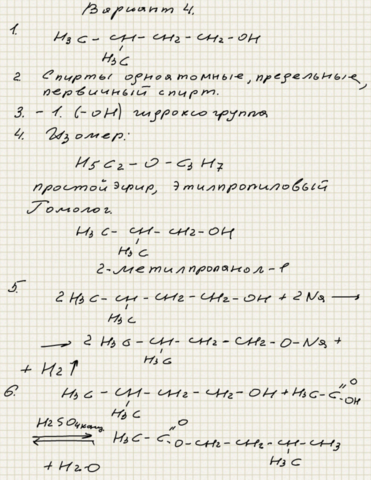 Вариант 4.
1.
H3C – CH – CH2 – CH2 – OH
H3C
2. Спирты одноатомные, предельные,
первичный спирт.
3. – 1. (–OH) гидроксогруппа
4. Изомер:
H5C2 – O – C3H7
простой эфир, этилпропиловый
Гомолог
H3C – CH – CH2 – OH
H3C
2-метилпропанол-1
5.
2 H3C – CH – CH2 – CH2 – OH + 2 Na →
H3C
→ 2 H3C – CH – CH2 – CH2 – O – Na +
H3C
+ H2↑
6.
H3C – CH – CH2 – CH2 – OH + H3C – C =O OH
H3C
H2SO4 конц ⇄ H3C – C =O O – CH2 – CH2 – CH – CH3
H3C
+ H2O